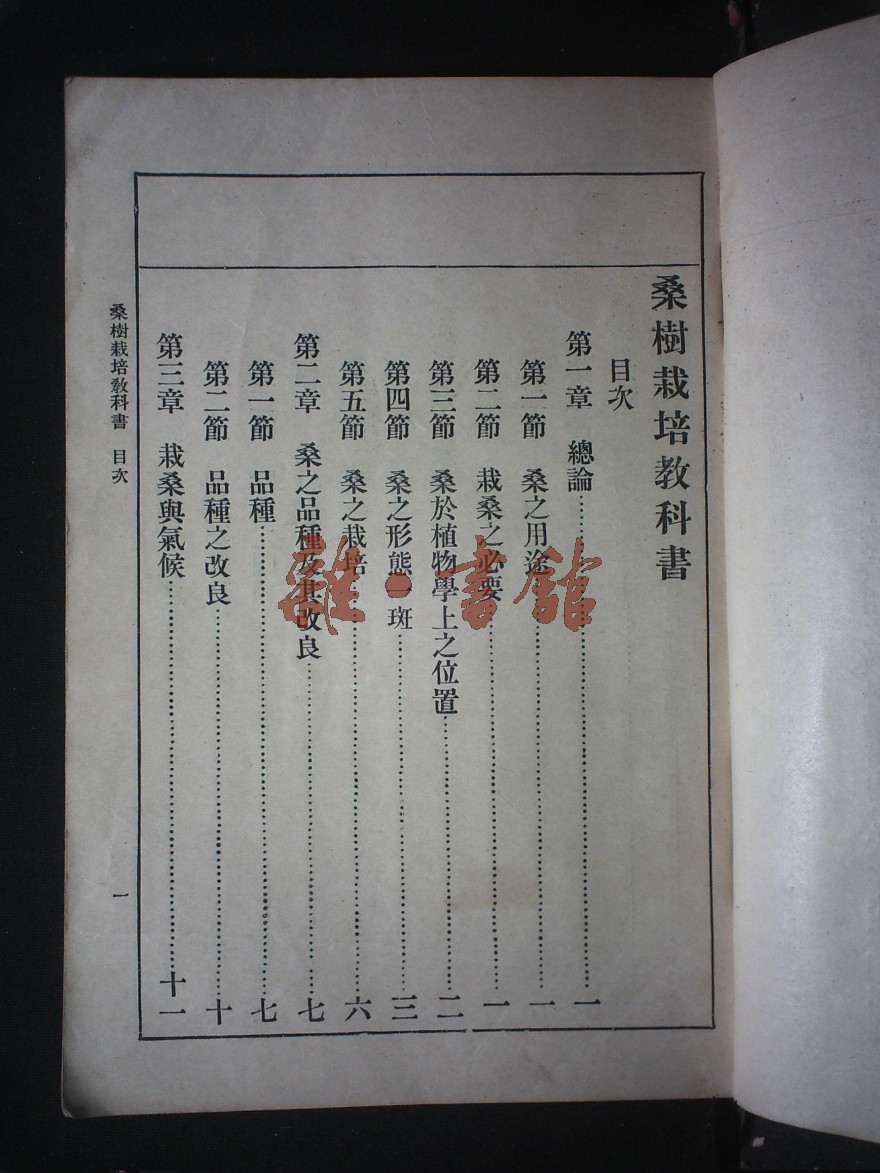 桑樹栽培教科書
目次
第一章 總論……一
第一節 桑之用途……一
第二節 栽桑之必要……一
第三節 桑於植物學上之位置……二
第四節 桑之形態一斑……三
第五節 桑之栽培……六
第二章 桑之品種及其改良……七
第一節 品種……七
第二節 品種之改良……十
第三章 栽桑與氣候……十一
桑樹栽培教科書 目次 一
雜·書館